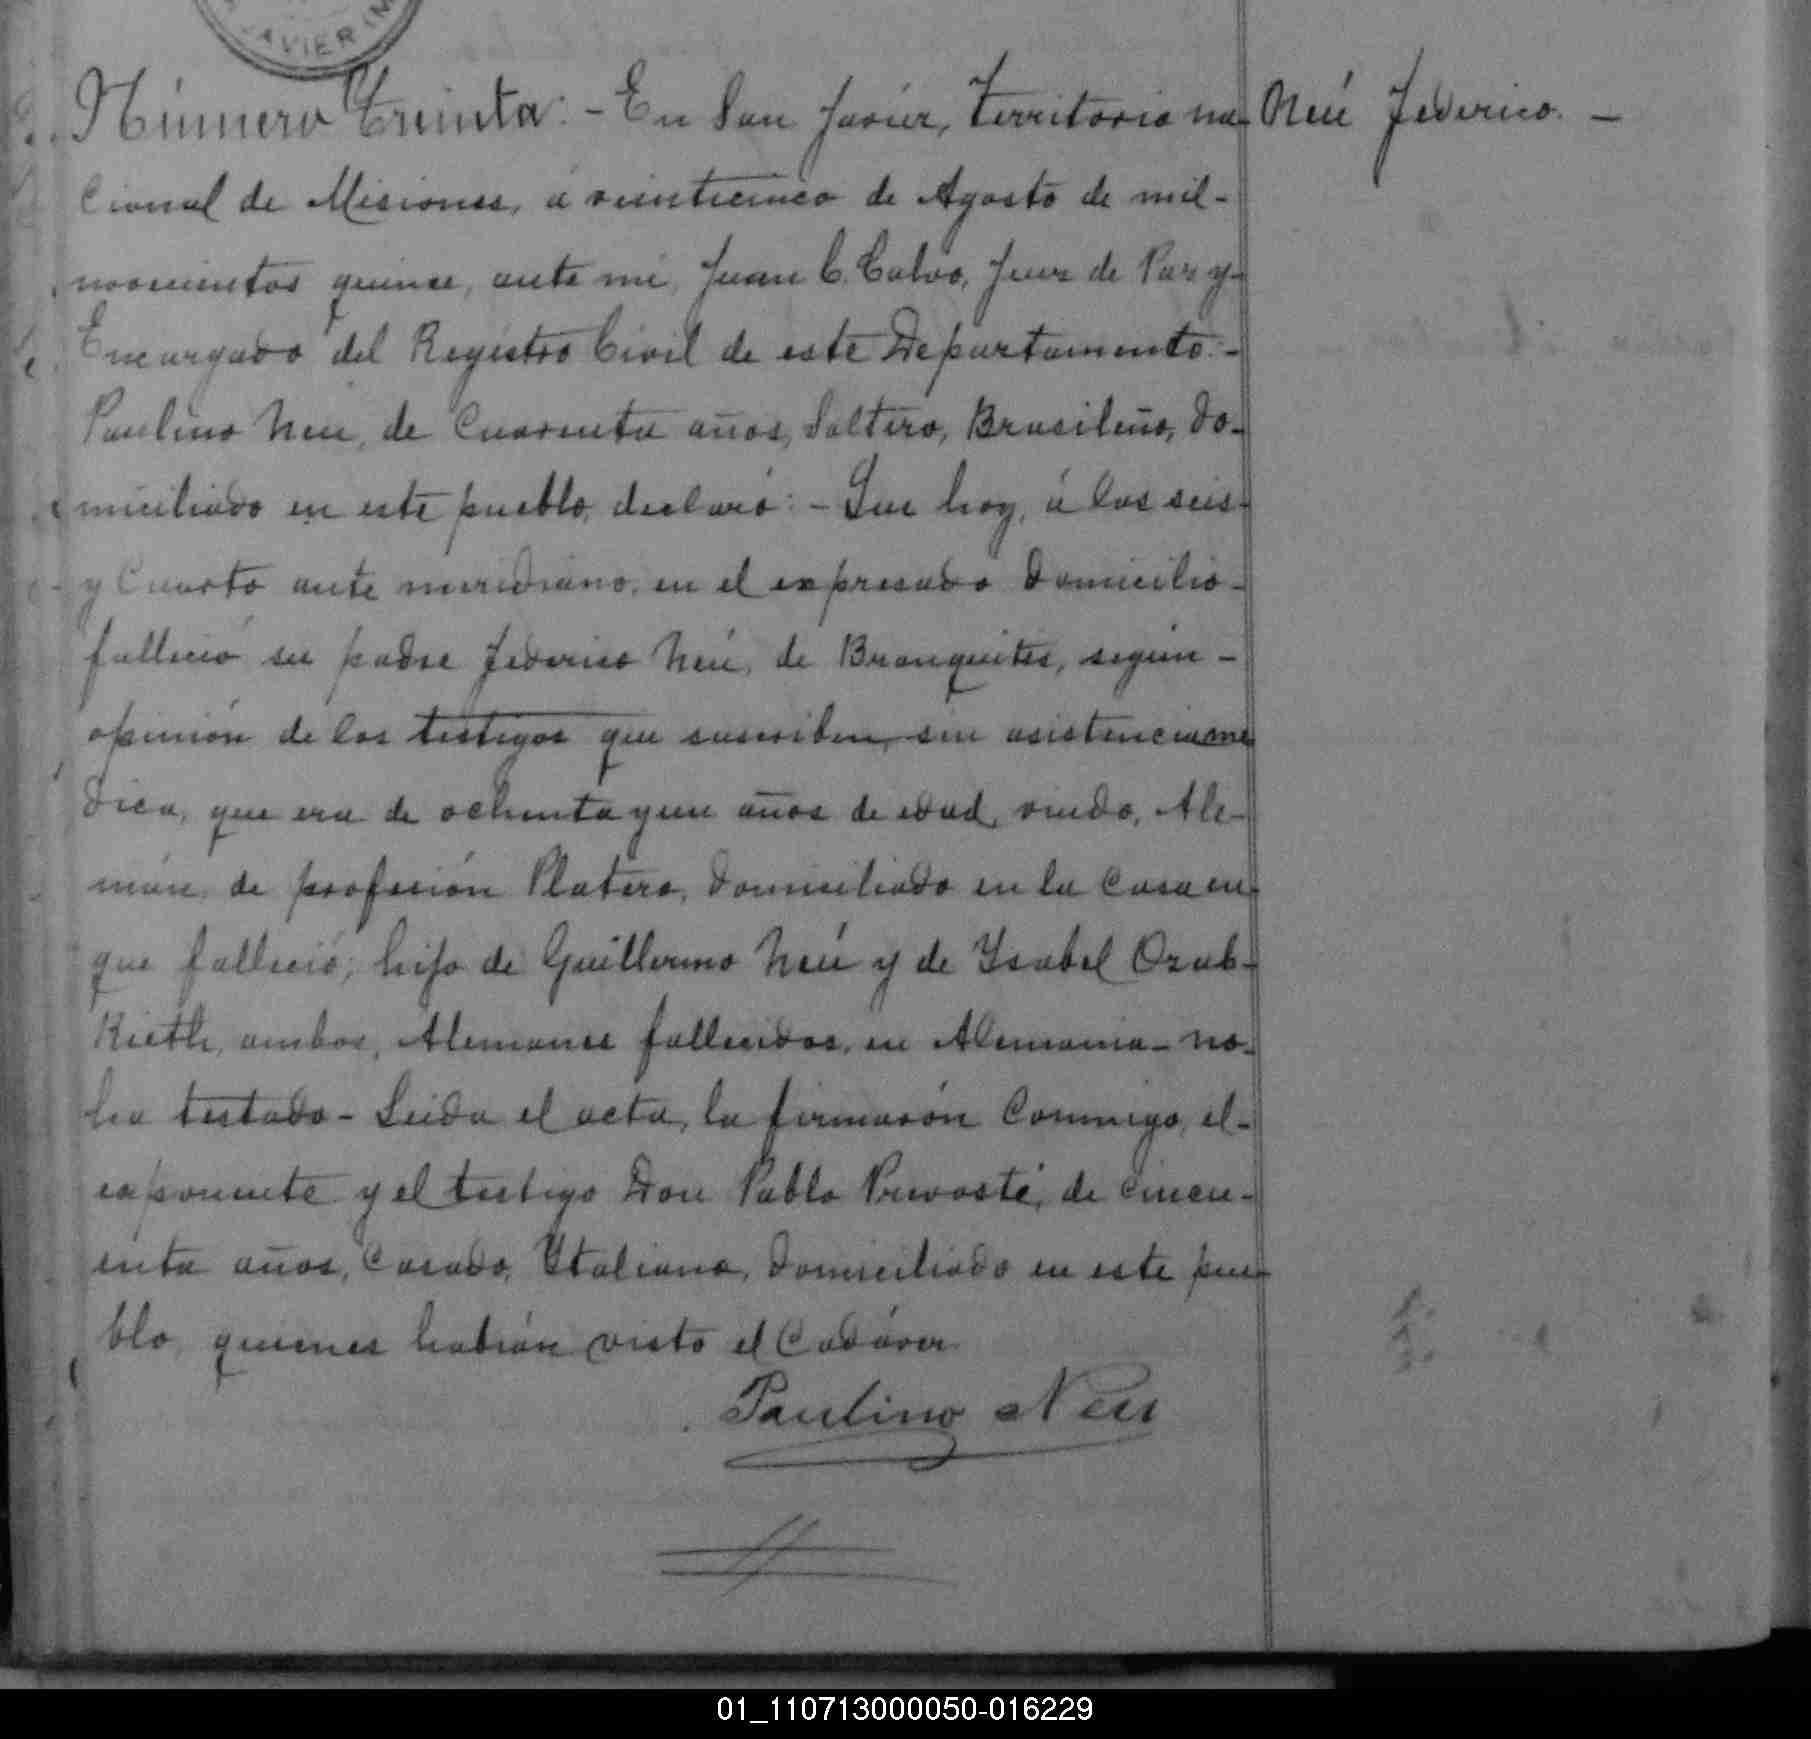 AVIER (M
Número Treinta:- En San Javier, Territorio na-
Neú Federico.-
cional de Misiones, á veinticinco de Agosto de mil-
novecientos quince, ante mi, Juan C. Calvo, Juez de Paz y-
Encargado del Registro Civil de este Departamento:-
Paulino Neu, de Cuarenta años, Soltero, Brasileño, do-
miciliado en este pueblo, declaró:- Que hoy, á las seis-
y Cuarto ante meridiano, en el expresado domicilio-
falleció su padre Federico Neú, de Bronquitis, según-
opinión de los testigos que suscriben, sin asistencia me
dica, que era de ochenta y un años de edad, viudo, Ale-
mán, de profesión Platero, domiciliado en la Casa en-
que falleció; hijo de Guillermo Neú y de Ysabel Ozab-
Rieth, ambos, Alemanes fallecidos, en Alemania- no-
ha testado- Leida el acta, la firmarón Conmigo, el-
exponente y el testigo Don Pablo Prevosté, de Cincu-
enta años, Casado, Ytaliano, domiciliado en este pue-
blo, quienes habián visto el Cadáver
Paulino Neu
01_110713000050-016229